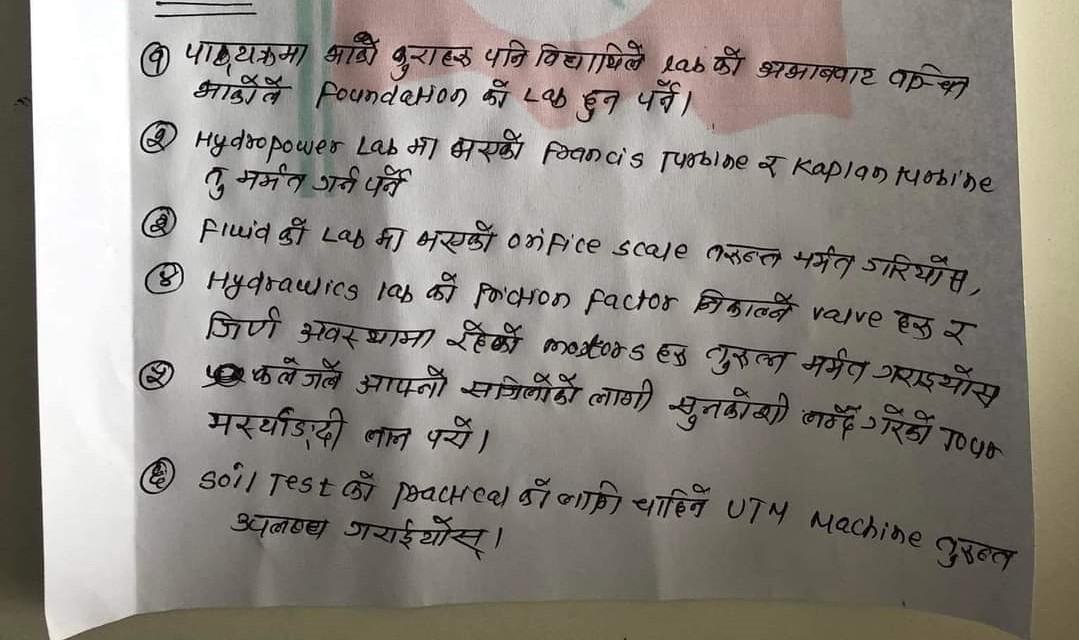 १ पाठ्यक्रममा भाको कुराहरु पनि विद्यार्थिले Lab को अभावबाट वञ्चित
भाकोले Foundation को Lab हुन पर्ने।
२ Hydropower Lab मा भएको Francis Turbine र Kaplan turbine
मर्मत गर्न पर्ने
३ Fluid को Lab मा भएको orifice scale तुरुन्त मर्मत गरियोस,
४ Hydraulics lab को friction factor निकाल्ने valve हरु र
जिर्ण अवस्थामा रहेको moators हरु तुरुन्त मर्मत गराइयोस
५ कलेजले आफ्नो सजिलोको लागी सुनकोशी लग्दै गरेको Tour
मर्स्याङ्दी लान पर्यो।
६ Soil Test को practical को लागि चाहिने UTM Machine तुरुन्त
उपलब्ध गराईयोस्।